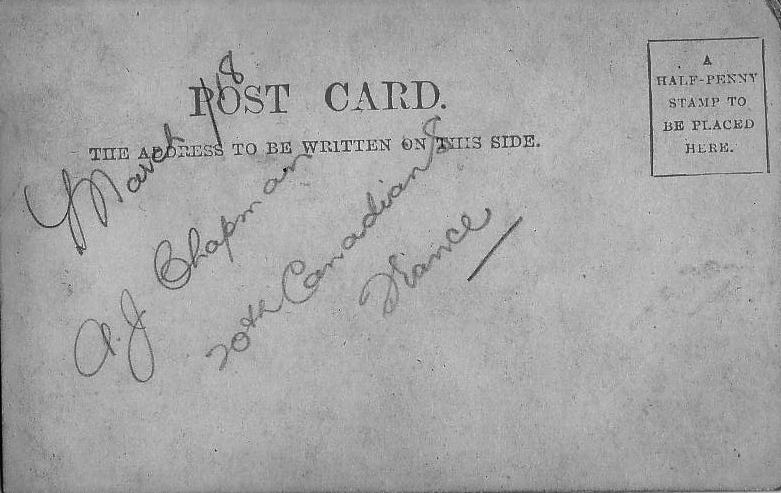 POST CARD.
THE ADDRESS TO BE WRITTEN ON THIS SIDE.
A
HALF-PENNY
STAMP TO
BE PLACED
HERE.
March /18
A.J Chapman
20th Canadians
France